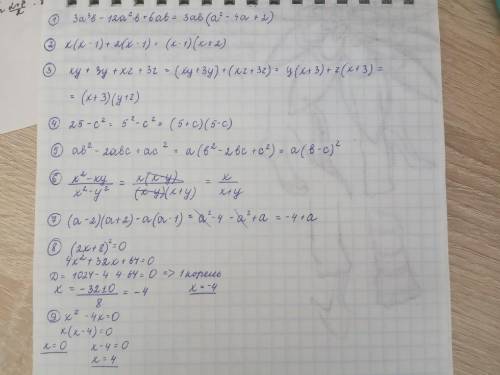 ① 3a³b - 12a²b + 6ab = 3ab(a² - 4a + 2)
② x(x-1) + 2(x-1) = (x-1)(x+2)
③ xy + 3y + xz + 3z = (xy+3y) + (xz+3z) = y(x+3) + z(x+3) =
= (x+3)(y+z)
④ 25 - c² = 5² - c² = (5+c)(5-c)
⑤ ab² - 2abc + ac² = a(b² - 2bc + c²) = a(b-c)²
⑥ (x² - xy)/(x² - y²) = x(x-y)/((x-y)(x+y)) = x/(x+y)
⑦ (a-2)(a+2) - a(a-1) = a² - 4 - a² + a = -4 + a
⑧ (2x+8)² = 0
4x² + 32x + 64 = 0
D = 1024 - 4·4·64 = 0 => 1 корень
x = (-32±0)/8 = -4 x = -4
⑨ x² - 4x = 0
x(x-4) = 0
x = 0 x-4=0
x = 4